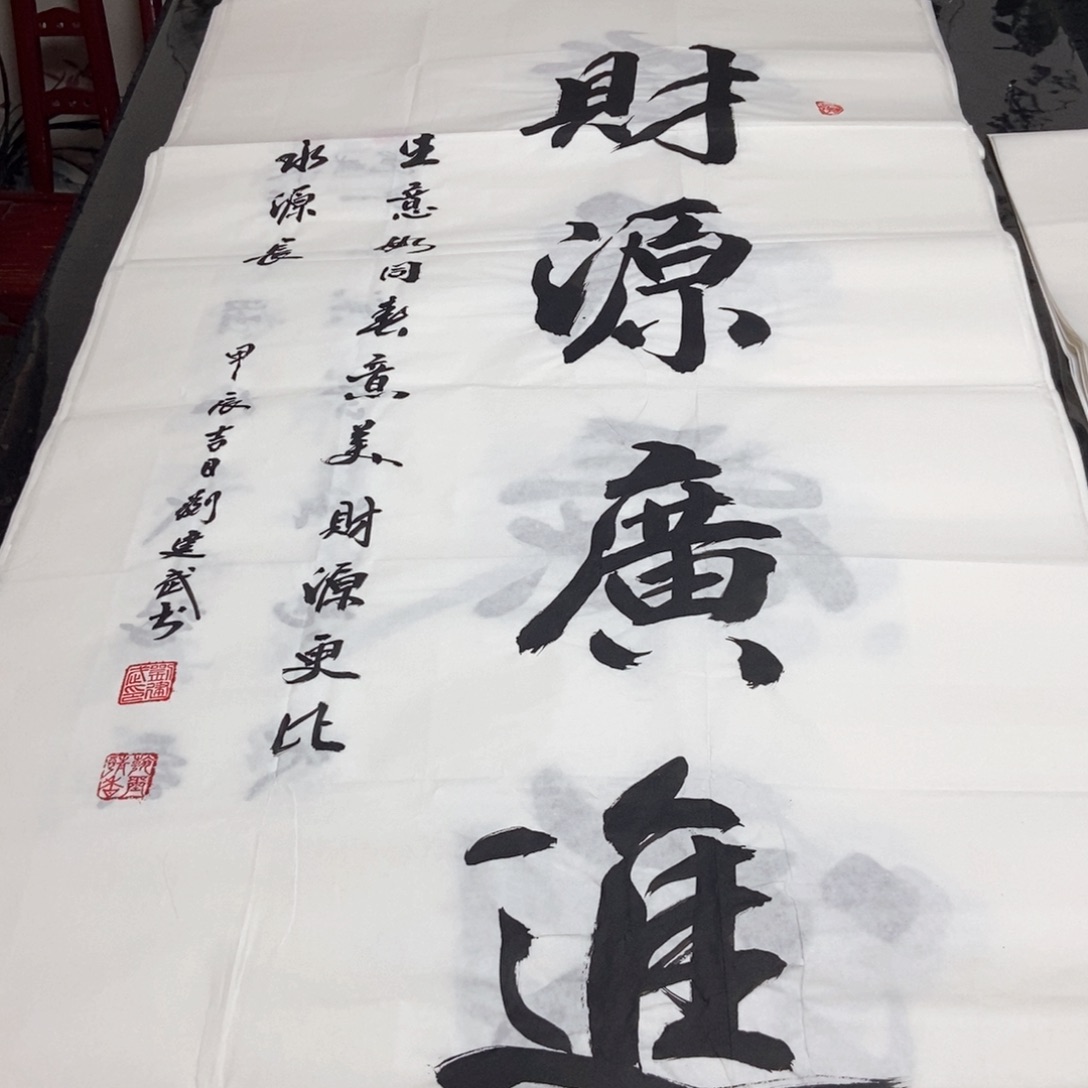 財源廣進
生意如同春意美財源更比
水源長
甲辰吉日劉建武书
劉建武印